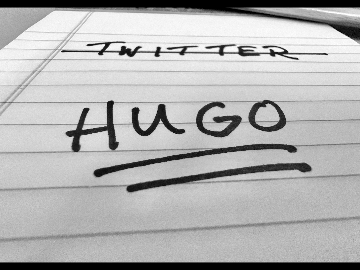 TWITTER
HUGO